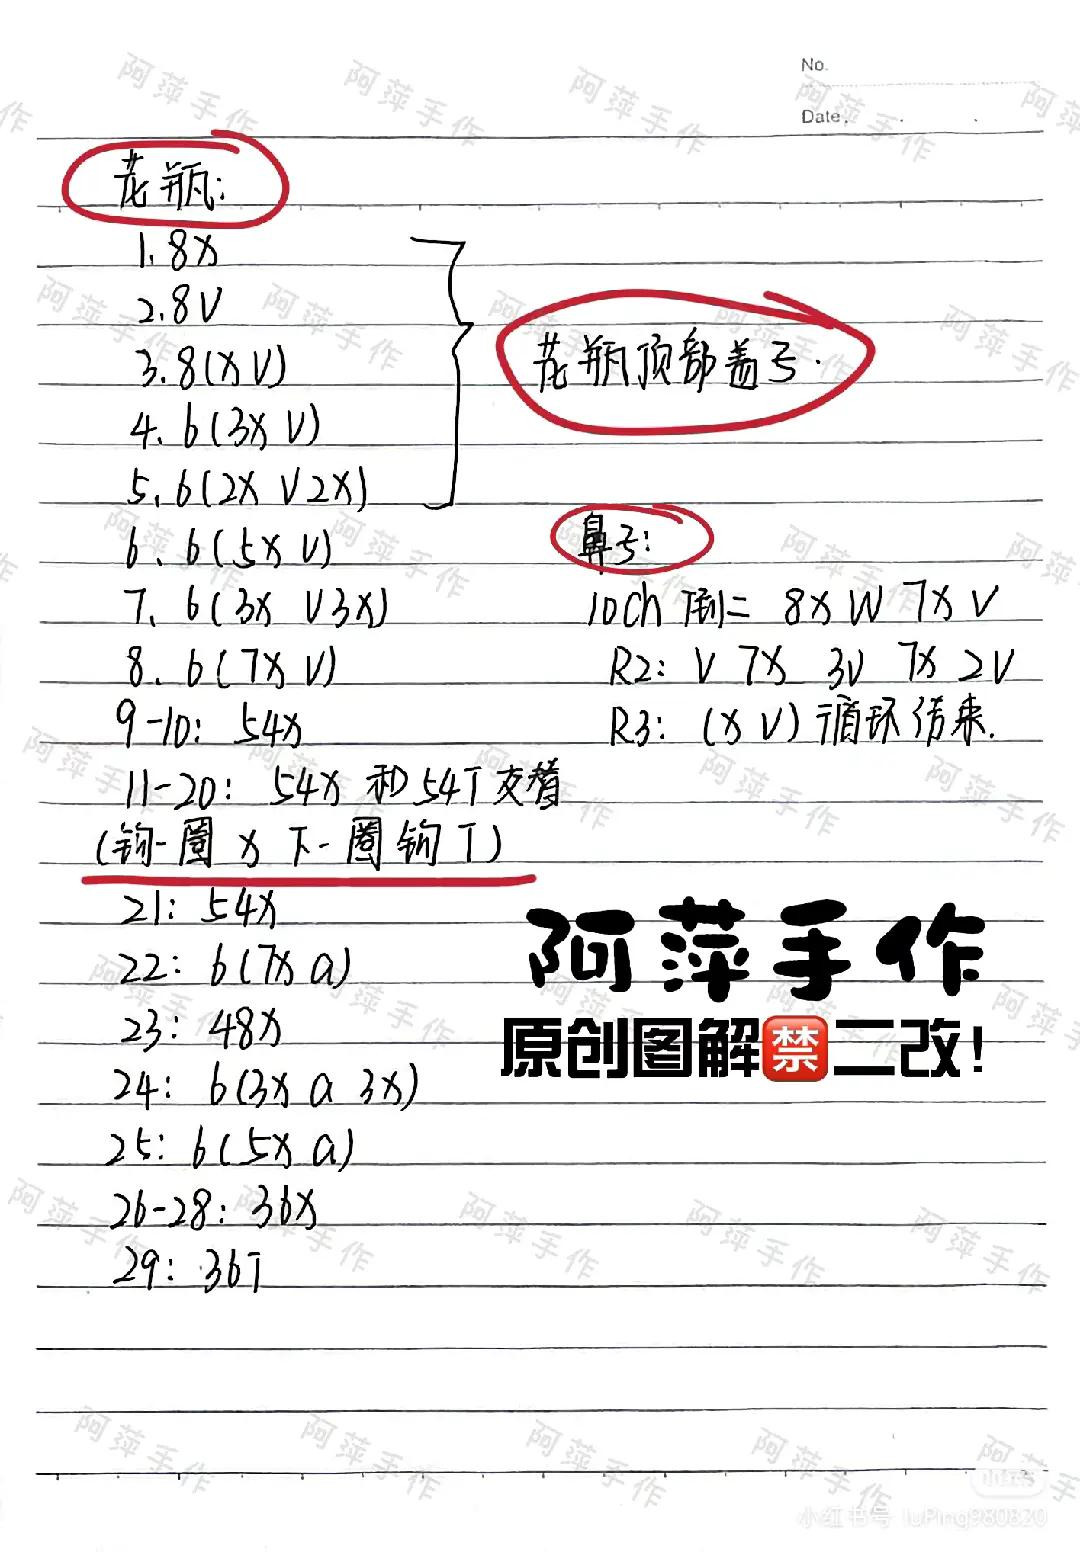 No.
Date.
花瓶:
1. 8X
2. 8V
3. 8(X V)
4. 6(3X V)
5. 6(2X V 2X)
花瓶顶部盖子.
6. 6(5X V)
7. 6(3X V 3X)
8. 6(7X V)
9-10: 54X
11-20: 54X 和 54T 交替
(钩一圈 X 下一圈钩 T)
21: 54X
22: 6(7X A)
23: 48X
24: 6(3X A 3X)
25: 6(5X A)
26-28: 36X
29: 36T
鼻子:
10ch 倒二 8X W 7X V
R2: V 7X 3V 7X 2V
R3: (X V) 循环结束.
阿萍手作
原创图解禁二改!
小红书
小红书号 luPing980820